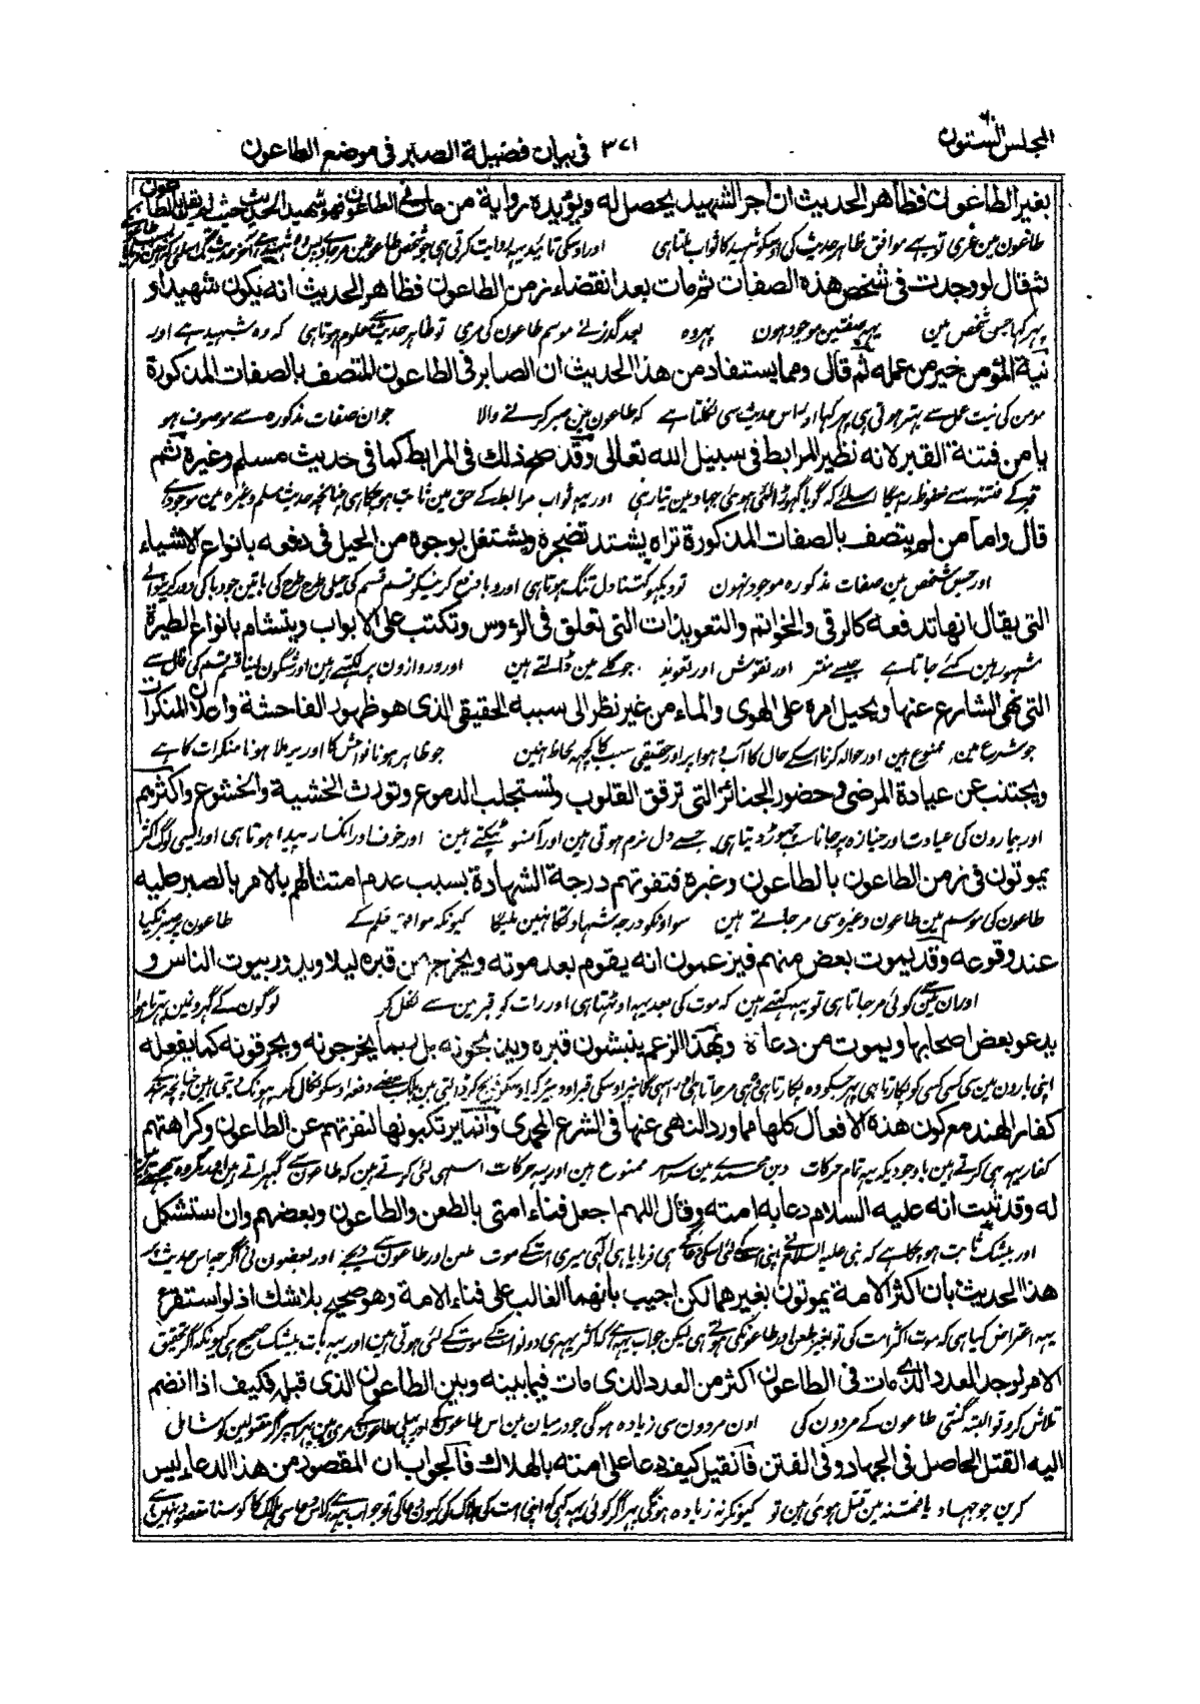 المجلس الستون
٣٧١ فی بیان فضیلة الصبر فی موضع الطاعون
بغیر الطاعون فظاهر الحدیث ان اجر الشهید یحصل له ویؤیده روایة من مات فی الطاعون فهو شهید الحدیث حیث لم یقل بالطاعون
طاعون مین مری تو ہے موافق ظاہر حدیث کی اوسکو شہید کا ثواب ملتا ہی اور اوسکی تائید یہہ روایت کرتی ہی جو شخص طاعون مین مرجاوے
ثم قال لو وجدت فی شخص هذه الصفات ثم مات بعد انقضاء زمن الطاعون فظاهر الحدیث انه یکون شهیدا و
پہر کہا جس شخص مین یہہ صفتین موجود ہون پہر وہ بعد گذرنے موسم طاعون کی مری تو ظاہر حدیث سے معلوم ہوتا ہی کہ وہ شہید ہے اور
نیة المؤمن خیر من عمله ثم قال ومما یستفاد من هذا الحدیث ان الصابر فی الطاعون المتصف بالصفات المذکورة
مومن کی نیت عمل سے بہتر ہوتی ہی پہر کہا اور اس حدیث سی نکلتا ہے کہ طاعون مین صبر کرنے والا جو ان صفات مذکورہ سے موصوف ہو
یامن فتنة القبر لانه نظیر المرابط فی سبیل الله تعالی وقد صح ذلك فی المرابط کما فی حدیث مسلم وغیره ثم
قبر کے فتنہ سے محفوظ رہیگا اسلئے کہ گویا گہوڑا لئی ہوئی جہاد مین تیار ہی اور یہہ ثواب مرابط کے حق مین ثابت ہو چکا ہی چنانچہ حدیث مسلم وغیرہ مین موجود ہے
قال واما من لم یتصف بالصفات المذکورة تراه یشتد تضجره ویشتغل بوجوه من الحیل فی دفعه بانواع الاشیاء
اور جس شخص مین صفات مذکورہ موجود نہون تو دیکہو کتنا دل تنگ ہوتا ہی اور وبا دفع کرنیکو قسم قسم کی حیلی طرح طرح کی باتین
التی یقال انها تدفعه کالرقی والخواتم والتعویذات التی تعلق فی الرؤس وتکتب علی الابواب ویتشام بانواع الطیرة
مشہور ہین کئے جاتا ہے جیسے منتر اور نقوش اور تعویذ جو گلے مین ڈالتے ہین اور دروازون پر لکہتے ہین اور شگون لینا قسم قسم کی فال سے
التی نهی الشارع عنها ویحیل امره علی الهوی والماء من غیر نظر الی سببه الحقیقی الذی هو ظهور الفاحشة واعلان المنکرات
جو شرع مین ممنوع ہین اور حوالہ کرنا اسکے حال کا آب و ہوا پر اور حقیقی سبب کا کچہہ لحاظ نہین جو ظاہر ہونا فواحش کا اور برملا ہونا منکرات کا ہے
ویجتنب عن عیادة المرضی وحضور الجنائز التی ترقق القلوب وتستجلب الدموع وتورث الخشیة والخشوع واکثرهم
اور بیمارون کی عیادت اور جنازہ پر جانا سب چہوڑ دیتا ہی جسے دل نرم ہوتی ہین اور آنسو ٹپکتے ہین اور خوف اور انکسار پیدا ہوتا ہی اور ایسی لوگ اکثر
یموتون فی زمن الطاعون بالطاعون وغیره فتفوتهم درجة الشهادة بسبب عدم امتثالهم بالامر بالصبر علیه
طاعون کی موسم مین طاعون وغیرہ سی مر جاتے ہین سو اونکو درجہ شہادت کا نہین ملیگا کیونکہ موافق حکم کے طاعون پر صبر نکیا
عند وقوعه وقد یموت بعض منهم فیزعمون انه یقوم بعد موته ویخرج من قبره لیلا ویدور بیوت الناس و
اور ان مین سے کوئی مر جاتا ہی تو یہہ کہتے ہین کہ موت کی بعد یہہ اوٹہتا ہی اور رات کو قبر مین سے نکل کر لوگون کے گہرونمین پہرتا ہی
یدعو بعض اصحابها ویموت من دعاه وبهذا الزعم ینبشون قبره ویذبحونه بل ربما یخرجونه ویحرقونه کما یفعله
اپنی یارون مین سی کسی کسی کو پکارتا ہی پہر جسکو وہ پکارتا ہی وہی مر جاتا ہی
کفار الهند مع کون هذه الافعال کلها مما ورد النهی عنها فی الشرع المحمدی وانما یرتکبونها لنفرتهم عن الطاعون وکراهتهم
کفار یہہ ہی کرتے ہین باوجودیکہ یہہ تمام حرکات دین محمدی مین سراسر ممنوع ہین اور یہہ حرکات اسہی لئی کرتے ہین کہ طاعون سے گہبراتے ہین
له وقد ثبت انه علیه السلام دعا به امته وقال اللهم اجعل فناء امتی بالطعن والطاعون وبعضهم وان استشکل
اور بیشک ثابت ہو چکا ہے کہ نبی علیہ السلام نے اپنی امت کے لئی اسکی دعا کی ہی فرمایا ہی الٰہی میری امت کے موت طعن اور طاعون سے کیجیے اور بعضون نی اگرچہ اس حدیث پر
هذا الحدیث بان اکثر الامة یموتون بغیرهما لکن اجیب بانهما الغالب علی فناء الامة وهو صحیح بلا شك اذ لو استقرئ
یہہ اعتراض کیا ہی کہ موت اکثر امت کی تو بغیر طعن اور طاعونکی ہوتے ہی لیکن جواب یہہ ہے کہ اکثر یہی دونو امت کے موت کے لئی ہوتی ہین اور یہہ بات بیشک صحیح ہی کیونکہ اگر تحقیق
الامر لوجد العدد الذی مات فی الطاعون اکثر من العدد الذی مات فیما بینه وبین الطاعون الذی قبله فکیف اذا انضم
تلاش کرو تو البتہ گنتی طاعون کے مردون کی اون مردون سی زیادہ ہوگی جو درمیان مین اس طاعون کے اور پہلی طاعون کے مری ہین پہر اگر مقتولین کو شامل
الیه القتل الحاصل فی الجهاد وفی الفتن فان قیل کیف دعا علی امته بالهلاك فالجواب ان المقصود من هذا الدعاء لیس
کرین جو جہاد یا فتنہ مین قتل ہوئی ہین تو کیونکر نہ زیادہ ہونگی پہر اگر کوئی یہہ کہی کہ اپنی امت کی ہلاک کی کیون دعا کی تو جواب یہہ ہے کہ اس دعا سی ہلاک کا کوسنا مقصود نہین ہے